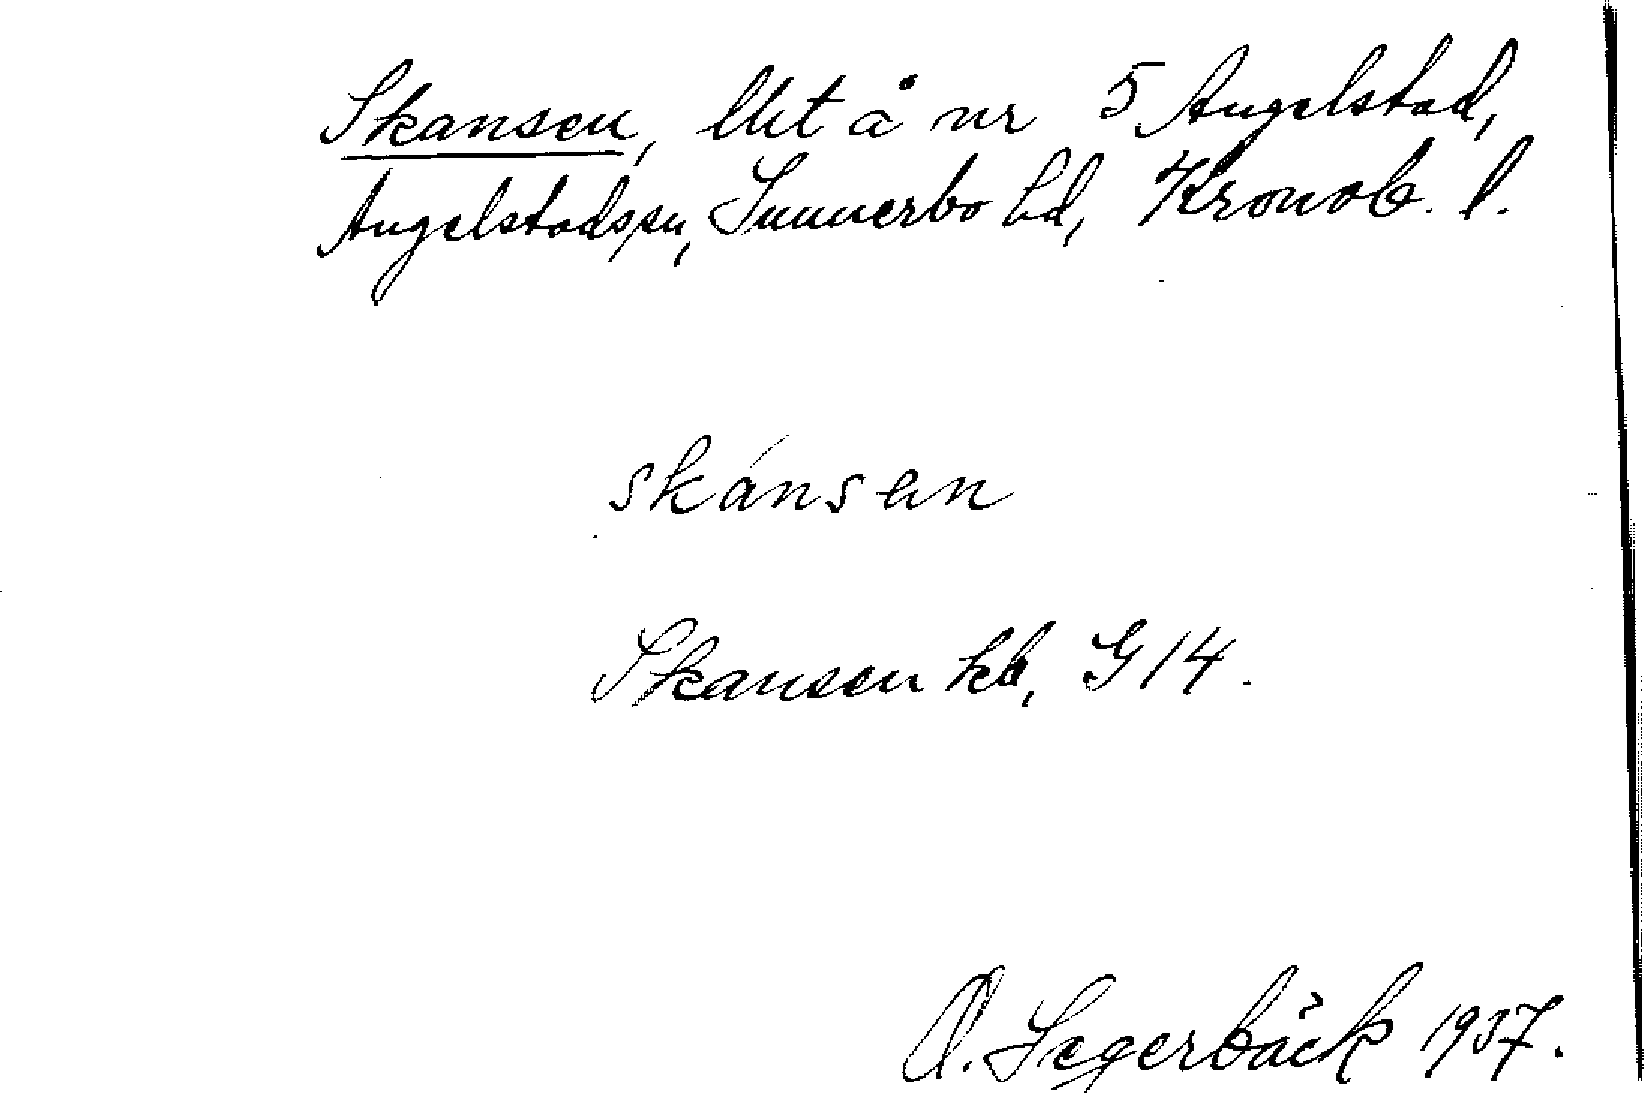 Skansen, lht å nr 5 Angelstad,
Angelstadsn, Sunnerbo hd, Kronob. l.
skánsen
Skansen kb, G 14.
O. Segerbäck 1937.